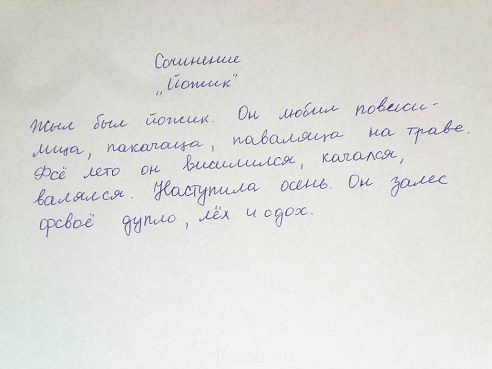 Сочинение
„Йожик“
Жыл был йожик. Он любил повесили-
лица, пакачаца, паваляца на траве.
Фсё лето он висилился, качался,
валялся. Наступила осень. Он залес
фсваё дупло, лёх и сдох.